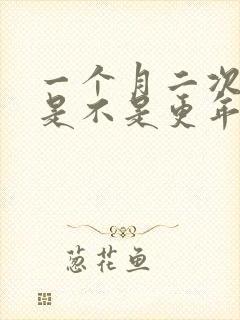 一个月二次
是不是更年
葱花鱼